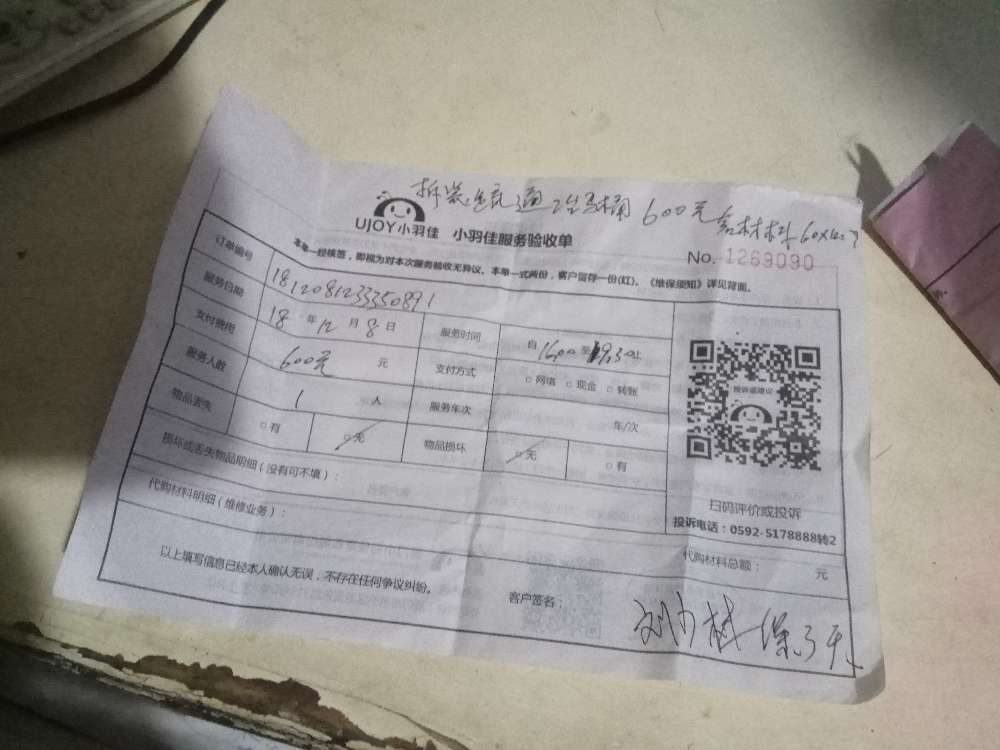 拆装 通 马桶 600元 含材料
UJOY小羽佳 小羽佳服务验收单
No. 1269090
本单一经核签，即视为对本次服务验收无异议。本单一式两份，客户留存一份(红)。《维保须知》详见背面。
订单编号 181208123350891
服务日期 18 年 12 月 8 日 服务时间 自 1600 至 1930 止
支付费用 600元 元 支付方式 □ 网络 □ 现金 □ 转账
服务人数 1 人 服务年次 年/次
物品丢失 □ 有 □ 无 物品损坏 □ 无 □ 有
损坏或丢失物品明细（没有可不填）：
投诉或建议
扫码评价或投诉
投诉电话：0592-5178888转2
代购材料明细（维修业务）：
代购材料总额： 元
以上填写信息已经本人确认无误，不存在任何争议纠纷。
客户签名：